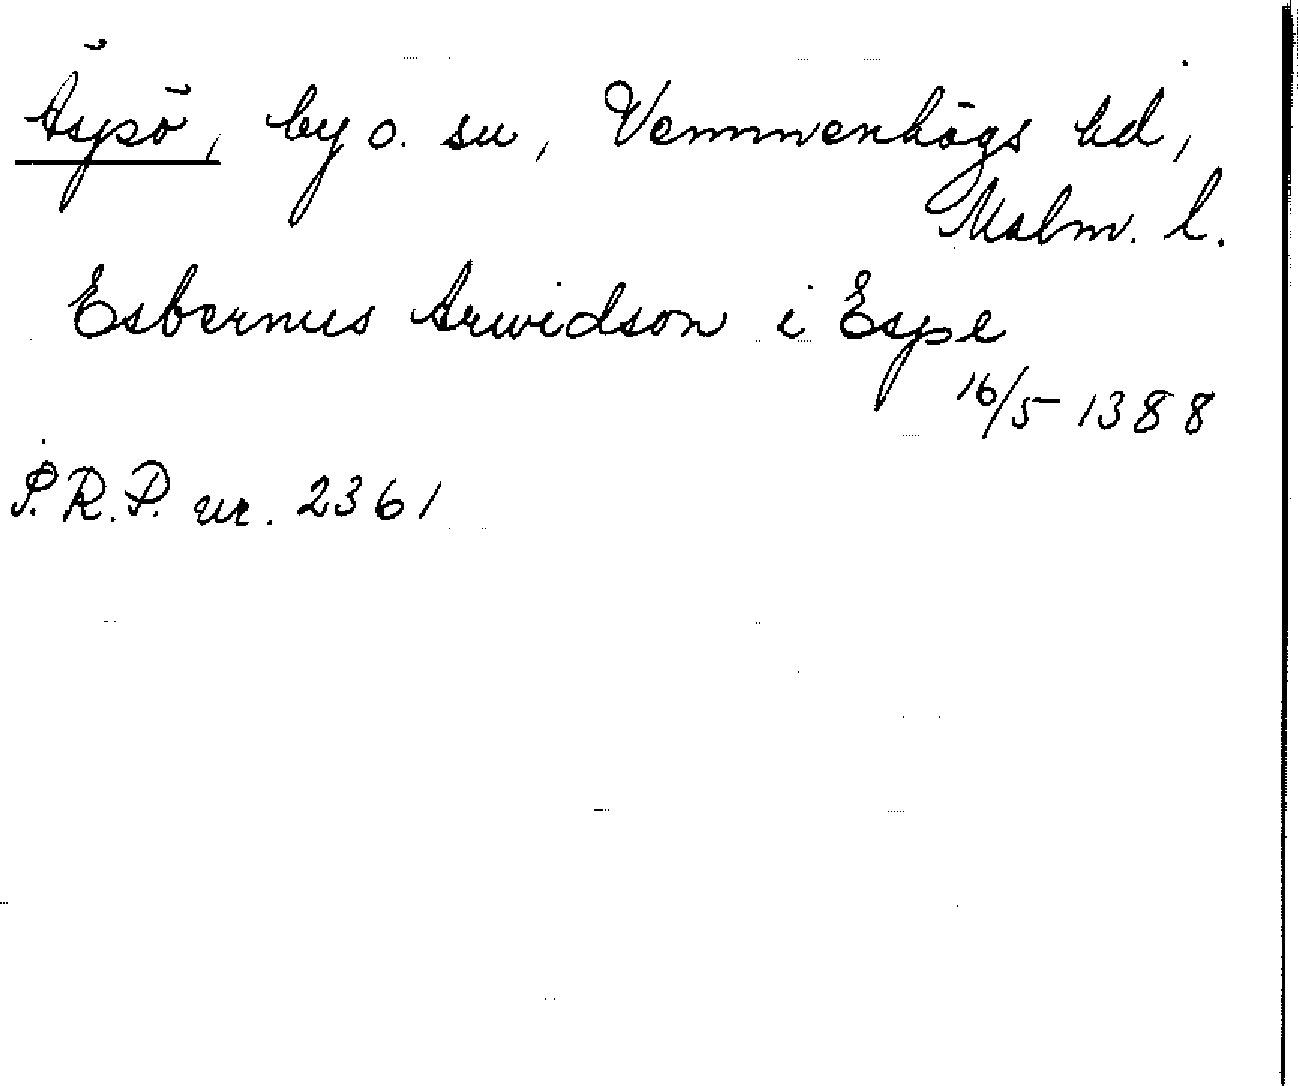 Äspö, by o. sn, Vemmenhögs hd,
Malm. l.
Esbernus Arwidson i Espe
16/5 1388
S.R.P. nr. 2361